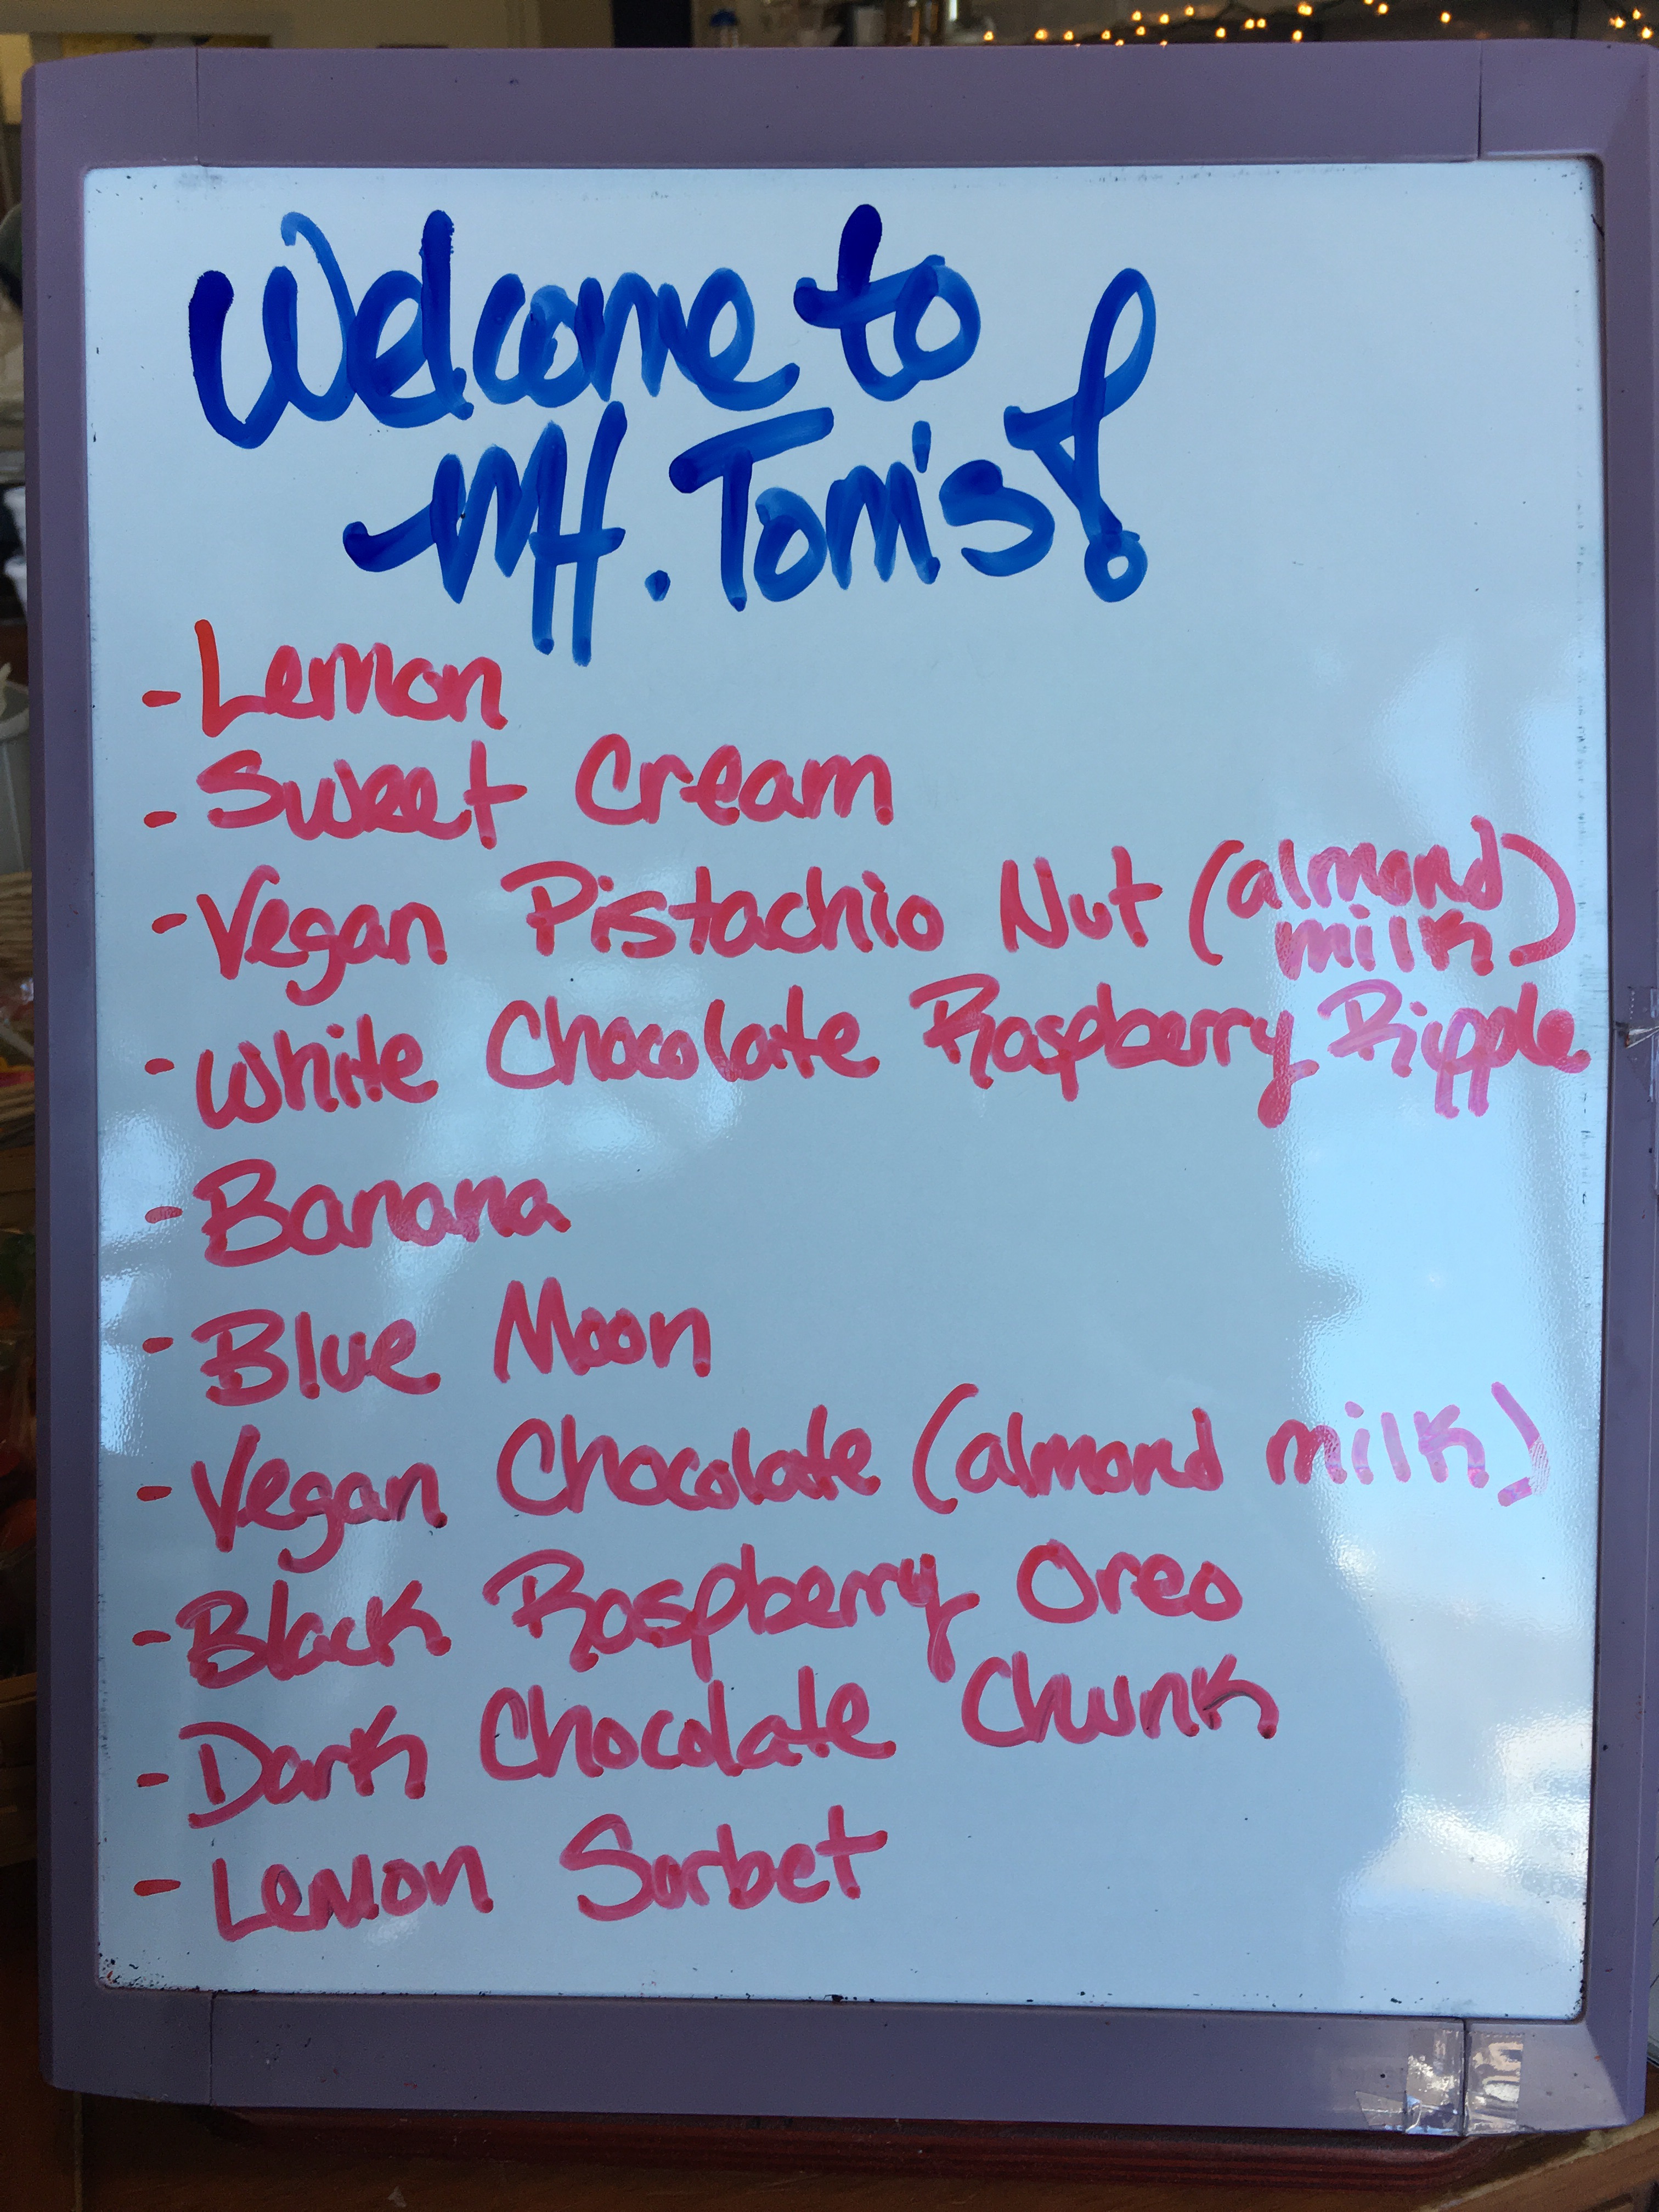 Welcome to
Mt. Tom's!
- Lemon
- Sweet Cream
- Vegan Pistachio Nut (almond
milk)
- White Chocolate Raspberry Ripple
- Banana
- Blue Moon
- Vegan Chocolate (almond milk)
- Black Raspberry Oreo
- Dark Chocolate Chunk
- Lemon Sorbet